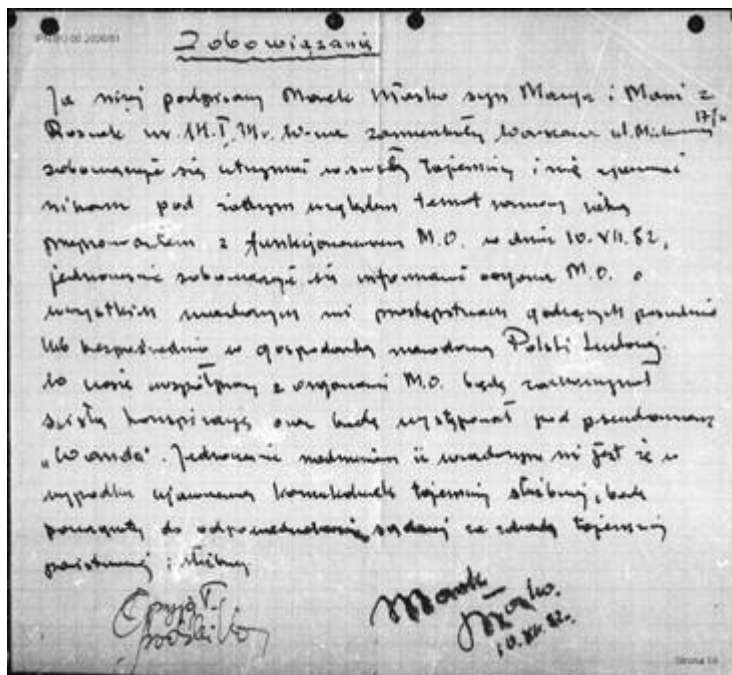 IPN BU 00 2006/81
Zobowiązanie
Ja niżej podpisany Marek Miasko syn i Marii z
ur. zamieszkały Warszawa ul. 17/
zobowiązuję się utrzymać w ścisłej tajemnicy i nie ujawniać
nikomu pod żadnym względem temat rozmowy jaką
przeprowadziłem z funkcjonariuszem M.O. w dniu 10.VII.82,
jednocześnie zobowiązuję się informować organa M.O. o
wszystkich wiadomych mi przestępstwach godzących pośrednio
lub bezpośrednio w gospodarkę narodową Polski Ludowej.
W czasie współpracy z organami M.O. będę zachowywał
ścisłą konspirację oraz będę występował pod pseudonimem
„Wanda". Jednocześnie nadmieniam iż wiadomym mi jest że w
wypadku ujawnienia tajemnicy służbowej, będę
pociągnięty do odpowiedzialności sądowej za zdradę tajemnicy
państwowej i służbowej
Marek
Miasko.
10.VII.82.
Strona 14